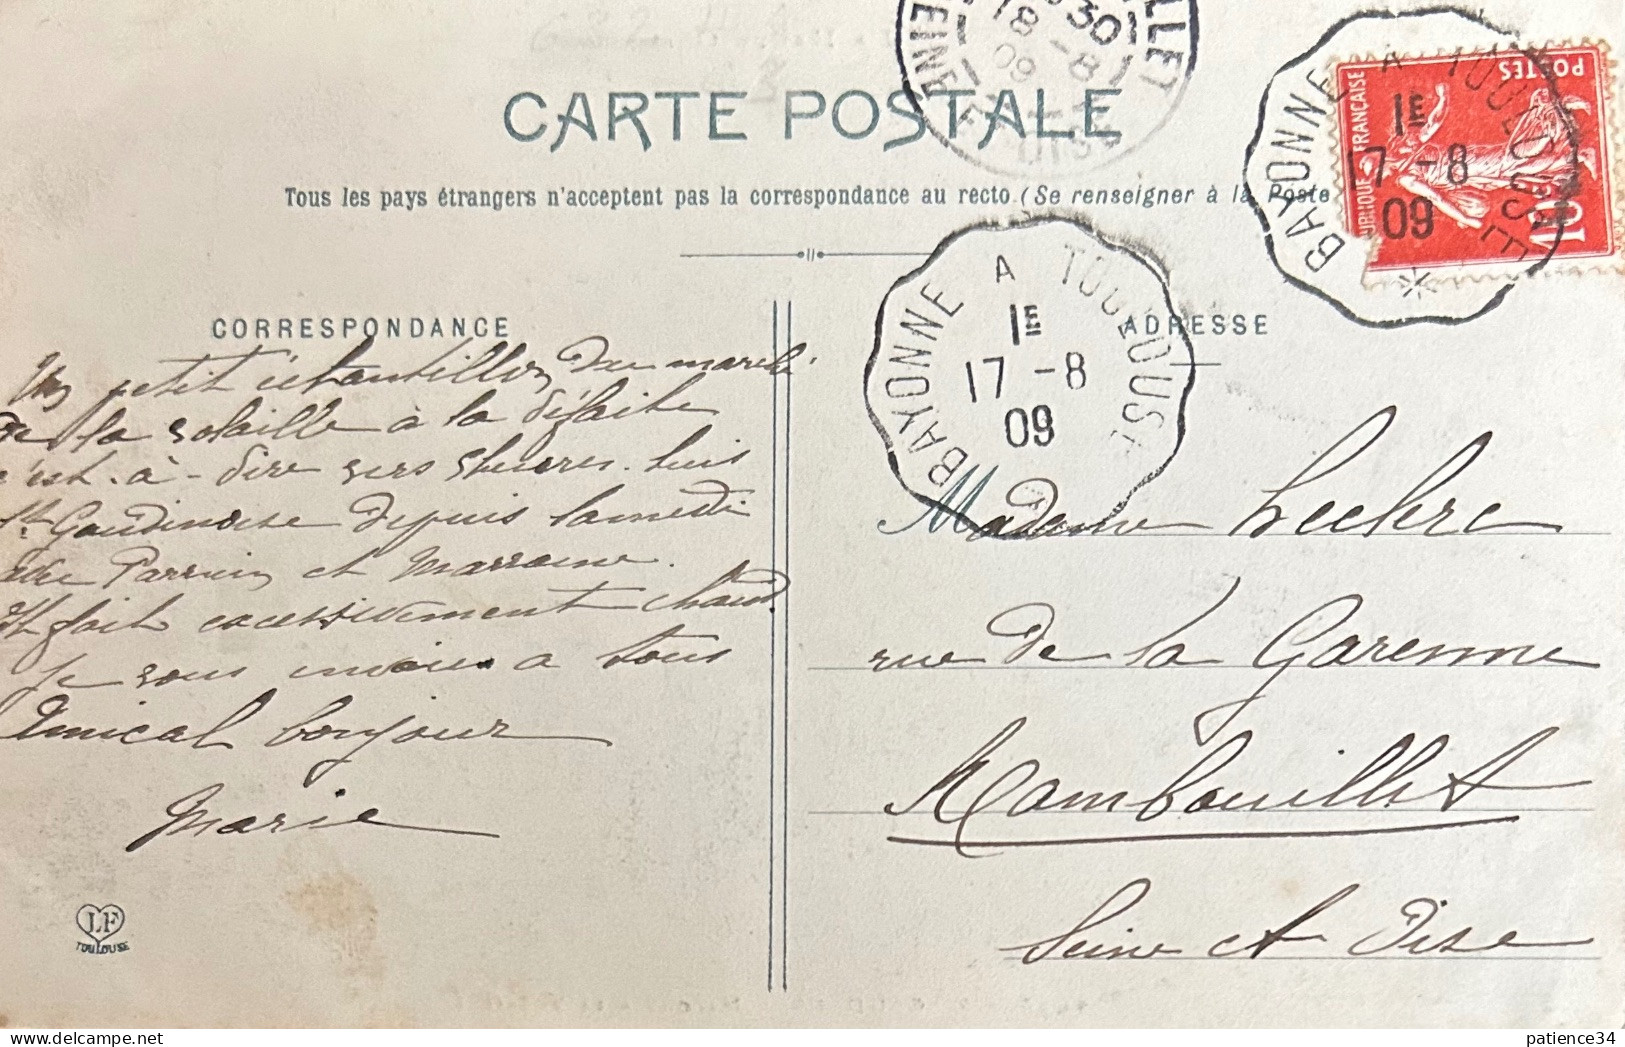 CARTE POSTALE
Tous les pays étrangers n'acceptent pas la correspondance au recto (Se renseigner à la Poste
RAMBOUILLET
18 -8
09
SEINE ET OISE
BAYONNE A TOULOUSE
1E
17 -8
09
BAYONNE A TOULOUSE
1E
17 -8
09
RÉPUBLIQUE FRANÇAISE
POSTES
10
CORRESPONDANCE
Un petit échantillon du marché
de la volaille à la défaite
c'est-à-dire vers 5 heures. Suis
St Gaudinoise depuis samedi
avec Parrain et Marraine.
Il fait excessivement chaud
Je vous envoie a tous
Amical bonjour
Marie
LF
TOULOUSE
ADRESSE
Madame Leclerc
rue de la Garenne
Rambouillet
Seine et Oise
patience34